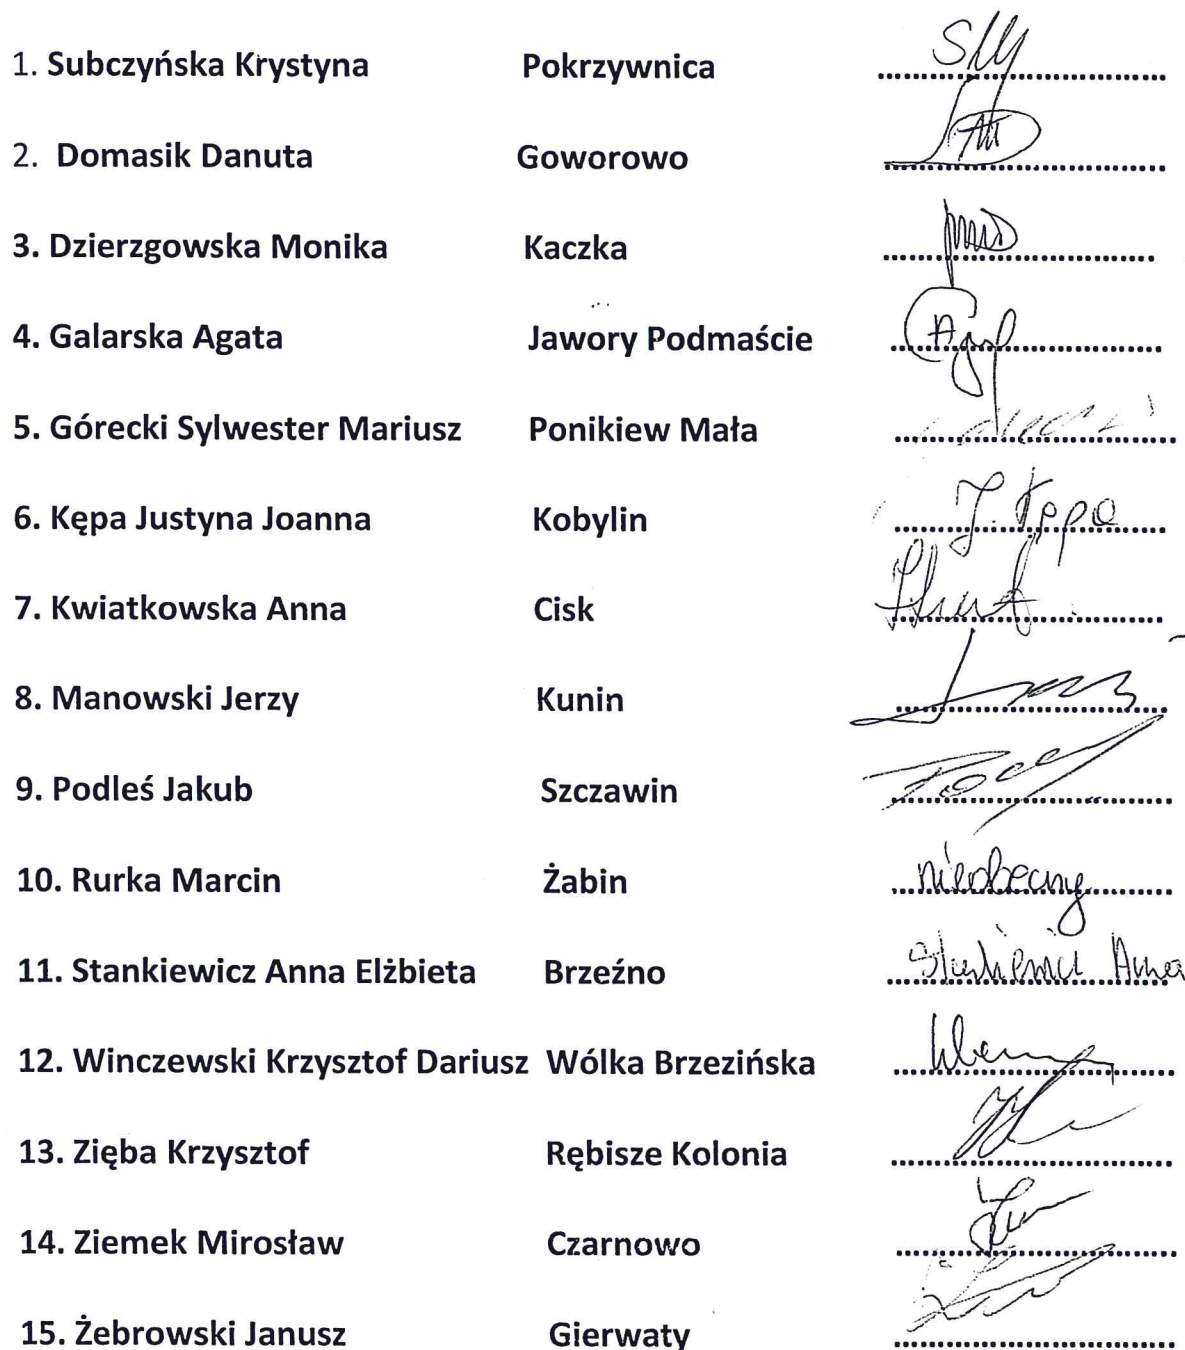 1. Subczyńska Krystyna Pokrzywnica
2. Domasik Danuta Goworowo
3. Dzierzgowska Monika Kaczka
4. Galarska Agata Jawory Podmaście
5. Górecki Sylwester Mariusz Ponikiew Mała
6. Kępa Justyna Joanna Kobylin J. Kępa
7. Kwiatkowska Anna Cisk
8. Manowski Jerzy Kunin
9. Podleś Jakub Szczawin
10. Rurka Marcin Żabin nieobecny
11. Stankiewicz Anna Elżbieta Brzeźno Stankiewicz Anna
12. Winczewski Krzysztof Dariusz Wólka Brzezińska
13. Zięba Krzysztof Rębisze Kolonia
14. Ziemek Mirosław Czarnowo
15. Żebrowski Janusz Gierwaty